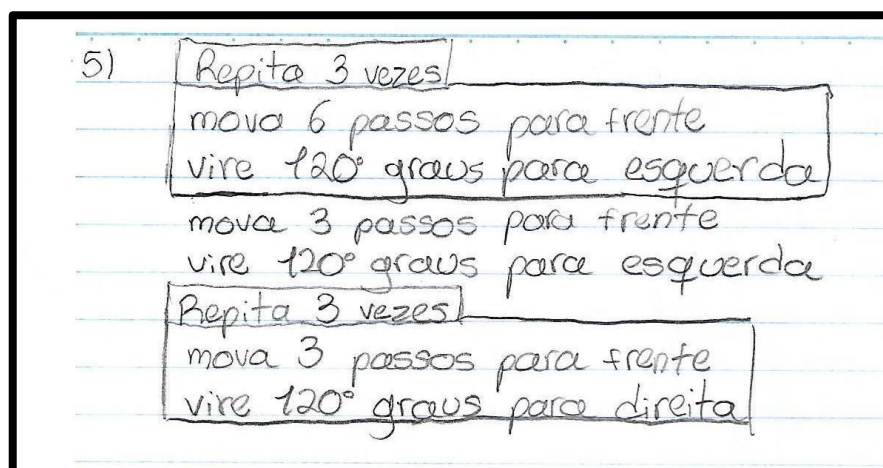 5) Repita 3 vezes
mova 6 passos para frente
vire 120° graus para esquerda
mova 3 passos para frente
vire 120° graus para esquerda
Repita 3 vezes
mova 3 passos para frente
vire 120° graus para direita